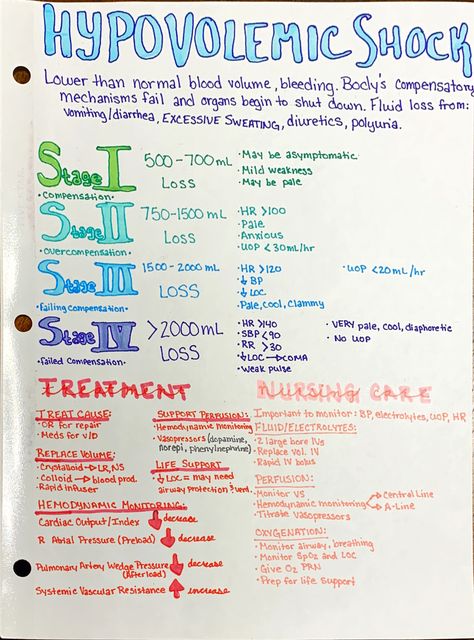 HYPOVOLEMIC SHOCK
Lower than normal blood volume, bleeding. Body's compensatory
mechanisms fail and organs begin to shut down. Fluid loss from:
vomiting/diarrhea, EXCESSIVE SWEATING, diuretics, polyuria.
Stage I
•compensation•
500-700mL
Loss
•May be asymptomatic
•Mild weakness
•May be pale
Stage II
•overcompensation•
750-1500mL
Loss
•HR >100
•Pale
•Anxious
•UOP <30mL/hr
Stage III
•failing compensation•
1500-2000mL
Loss
•HR >120
•↓ BP
•↓ LOC
•Pale, cool, clammy
•UOP <20mL/hr
Stage IV
•failed compensation•
>2000mL
Loss
•HR >140
•SBP <90
•RR >30
•↓LOC→COMA
•Weak pulse
•VERY pale, cool, diaphoretic
•No UOP
TREATMENT
TREAT CAUSE:
•OR for repair
•Meds for V/D
REPLACE VOLUME:
•Crystalloid→LR, NS
•Colloid→blood prod.
•Rapid Infuser
SUPPORT PERFUSION:
•Hemodynamic monitoring
•Vasopressors (dopamine,
norepi, phenylnephrine)
LIFE SUPPORT
•↓LOC= may need
airway protection & vent.
HEMODYNAMIC MONITORING:
Cardiac Output/Index ↓ decrease
R Atrial Pressure (Preload) ↓ decrease
Pulmonary Artery Wedge Pressure ↓ decrease
(Afterload)
Systemic Vascular Resistance ↑ increase
NURSING CARE
Important to monitor: BP, electrolytes, UOP, HR
FLUID/ELECTROLYTES:
•2 large bore IVs
•Replace Vol. IV
•Rapid IV bolus
PERFUSION:
•Monitor VS
•Hemodynamic monitoring
Central Line
A-Line
•Titrate Vasopressors
OXYGENATION:
•Monitor airway, breathing
•Monitor SpO2 and LOC
•Give O2 PRN
•Prep for life Support